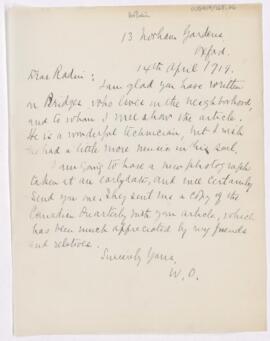 13 Norham Gardens
Oxford.
14th April 1919.
Dear Radin:
I am glad you have written
on Bridges who lives in the neighborhood,
and to whom I will show the article.
He is a wonderful technician, but I wish
he had a little more music in his soul.
I am going to have a new photograph
taken at an early date, and will certainly
send you one. They sent me a copy of the
Canadian Quarterly with your article, which
has been much appreciated by my friends
and relatives.
Sincerely Yours,
W. O.